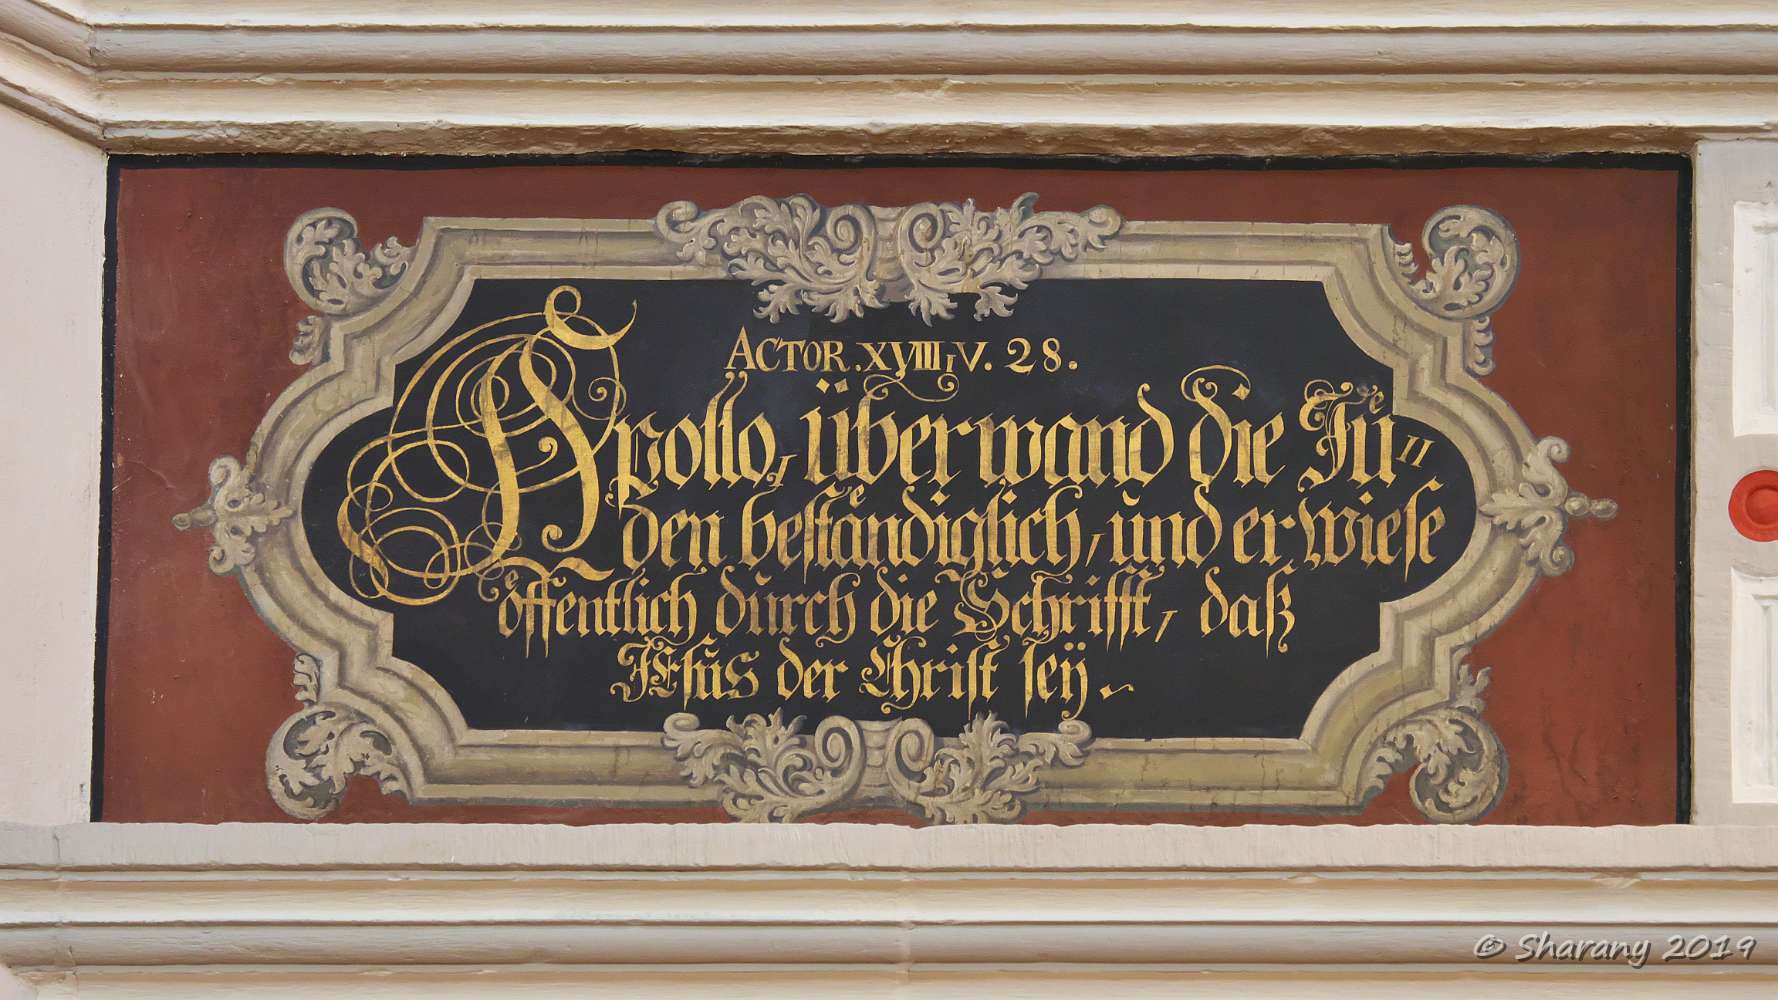 ACTOR. XVIII, V. 28.
Apollo, überwand die Jü=
den beständiglich, und erwiese
öffentlich durch die Schrifft, daß
JEsus der Christ seÿ.
© Sharany 2019